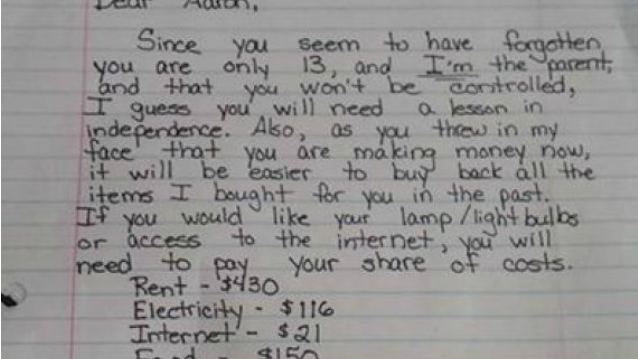 Dear Aaron,
Since you seem to have forgotten
you are only 13, and I'm the parent,
and that you won't be controlled,
I guess you will need a lesson in
independence. Also, as you threw in my
face that you are making money now,
it will be easier to buy back all the
items I bought for you in the past.
If you would like your lamp/lightbulbs
or access to the internet, you will
need to pay your share of costs.
Rent - $430
Electricity - $116
Internet - $21
Food - $150